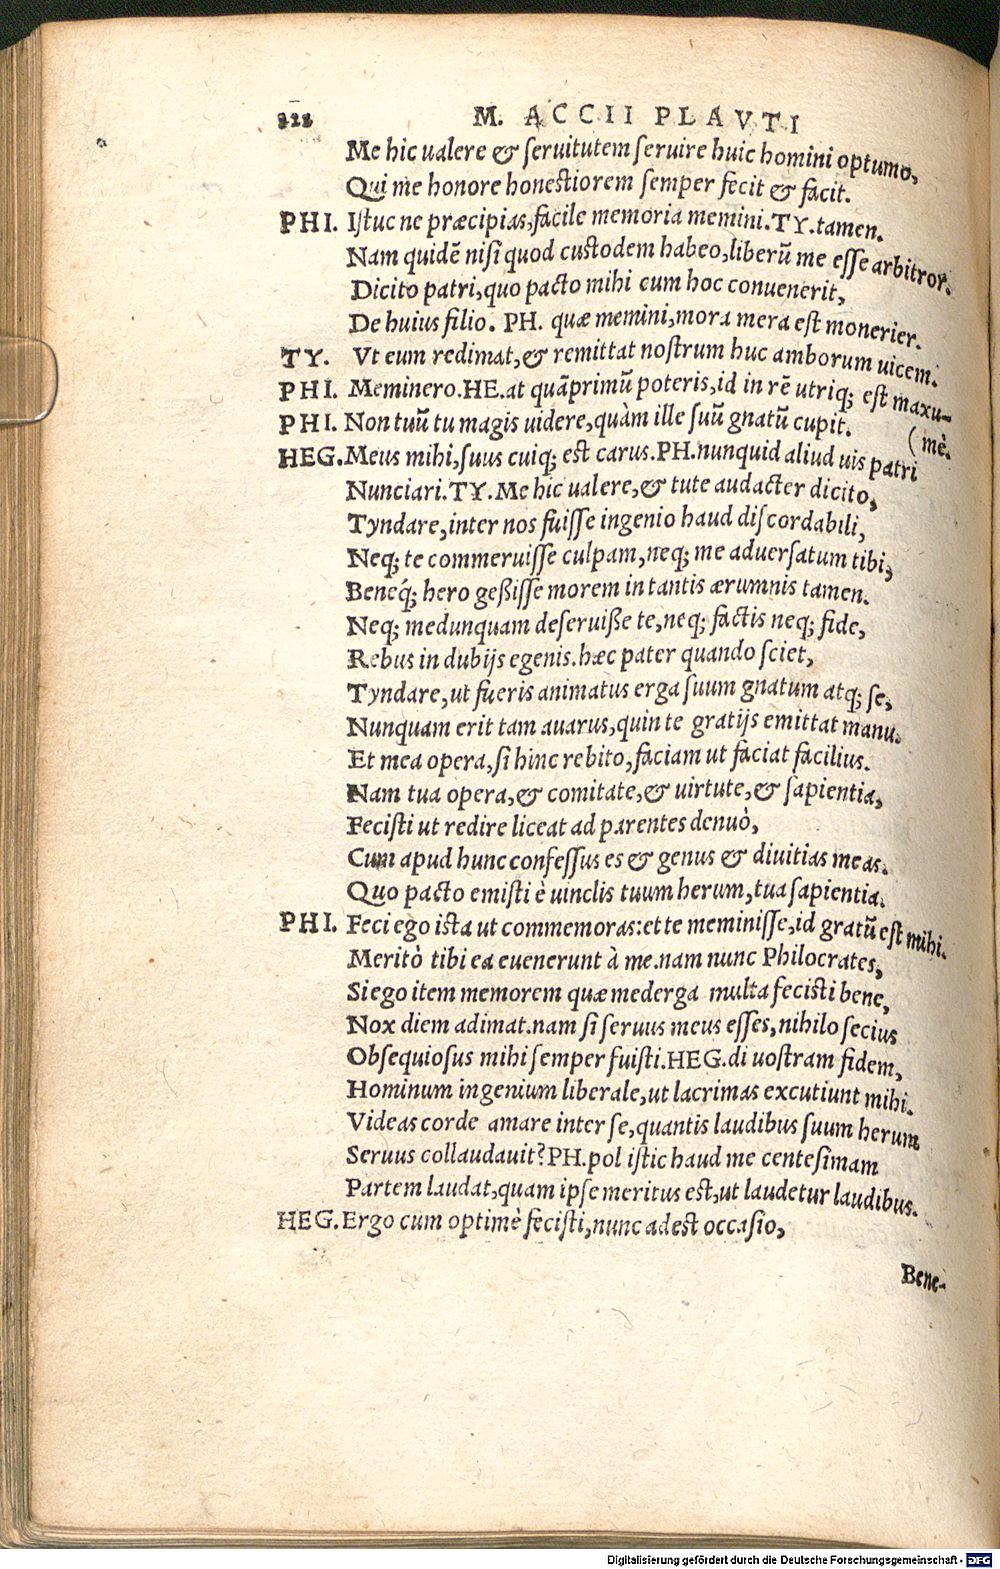 222 M. ACCII PLAVTI
Me hic ualere & seruitutem seruire huic homini optumo,
Qui me honore honestiorem semper fecit & facit.
PHI. Istuc ne præcipias, facile memoria memini. TY. tamen.
Nam quidē nisi quod custodem habeo, liberū me esse arbitror.
Dicito patri, quo pacto mihi cum hoc conuenerit,
De huius filio. PH. quæ memini, mora mera est monerier.
TY. Vt eum redimat, & remittat nostrum huc amborum uicem.
PHI. Meminero. HE. at quāprimū poteris, id in rē utriq; est maxu-
PHI. Non tuū tu magis uidere, quàm ille suū gnatū cupit. (mè.
HEG. Meus mihi, suus cuiq; est carus. PH. nunquid aliud uis patri
Nunciari. TY. Me hic ualere, & tute audacter dicito,
Tyndare, inter nos fuisse ingenio haud discordabili,
Neq; te commeruisse culpam, neq; me aduersatum tibi,
Beneq́; hero geßisse morem in tantis ærumnis tamen.
Neq; med unquam deseruiße te, neq; factis neq; fide,
Rebus in dubijs egenis. hæc pater quando sciet,
Tyndare, ut fueris animatus erga suum gnatum atq; se,
Nunquam erit tam auarus, quin te gratijs emittat manu.
Et mea opera, si hinc rebito, faciam ut faciat facilius.
Nam tua opera, & comitate, & uirtute, & sapientia,
Fecisti ut redire liceat ad parentes denuò,
Cum apud hunc confessus es & genus & diuitias meas.
Quo pacto emisti è uinclis tuum herum, tua sapientia.
PHI. Feci ego ista ut commemoras: et te meminisse, id gratū est mihi.
Meritò tibi ea euenerunt à me. nam nunc Philocrates,
Si ego item memorem quæ mederga multa fecisti bene,
Nox diem adimat. nam si seruus meus esses, nihilo secius
Obsequiosus mihi semper fuisti. HEG. di uostram fidem,
Hominum ingenium liberale, ut lacrimas excutiunt mihi.
Videas corde amare inter se, quantis laudibus suum herum
Seruus collaudauit? PH. pol istic haud me centesimam
Partem laudat, quam ipse meritus est, ut laudetur laudibus.
HEG. Ergo cum optimè fecisti, nunc adest occasio,
Bene-
Digitalisierung gefördert durch die Deutsche Forschungsgemeinschaft - DFG